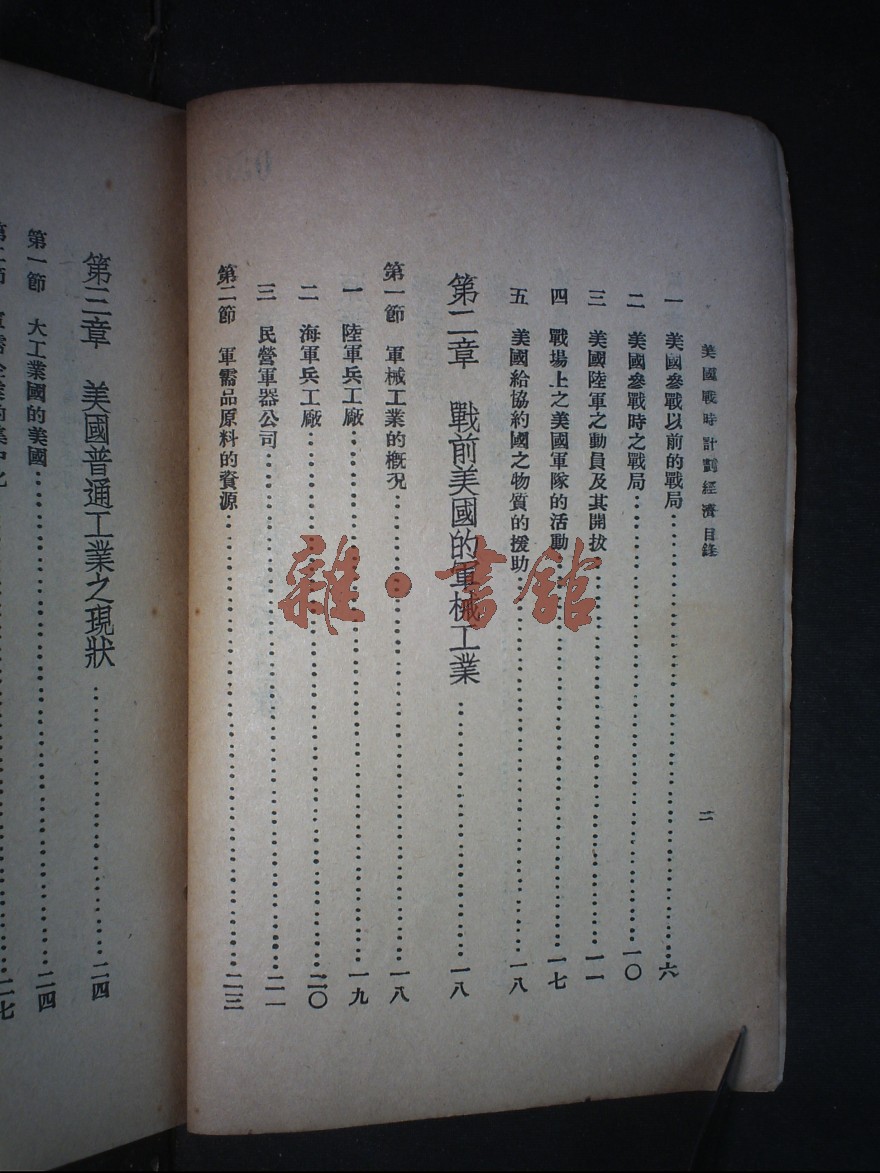 美國戰時計劃經濟 目錄
二
一 美國參戰以前的戰局……六
二 美國參戰時之戰局……一〇
三 美國陸軍之動員及其開拔……一一
四 戰場上之美國軍隊的活動……一七
五 美國給協約國之物質的援助……一八
第二章 戰前美國的軍械工業……一八
第一節 軍械工業的概况……一八
一 陸軍兵工廠……一九
二 海軍兵工廠……二〇
三 民營軍器公司……二一
第二節 軍需品原料的資源……二三
第三章 美國普通工業之現狀……二四
第一節 大工業國的美國……二四
第二節 軍需企業的集中化……二七
雜·書館